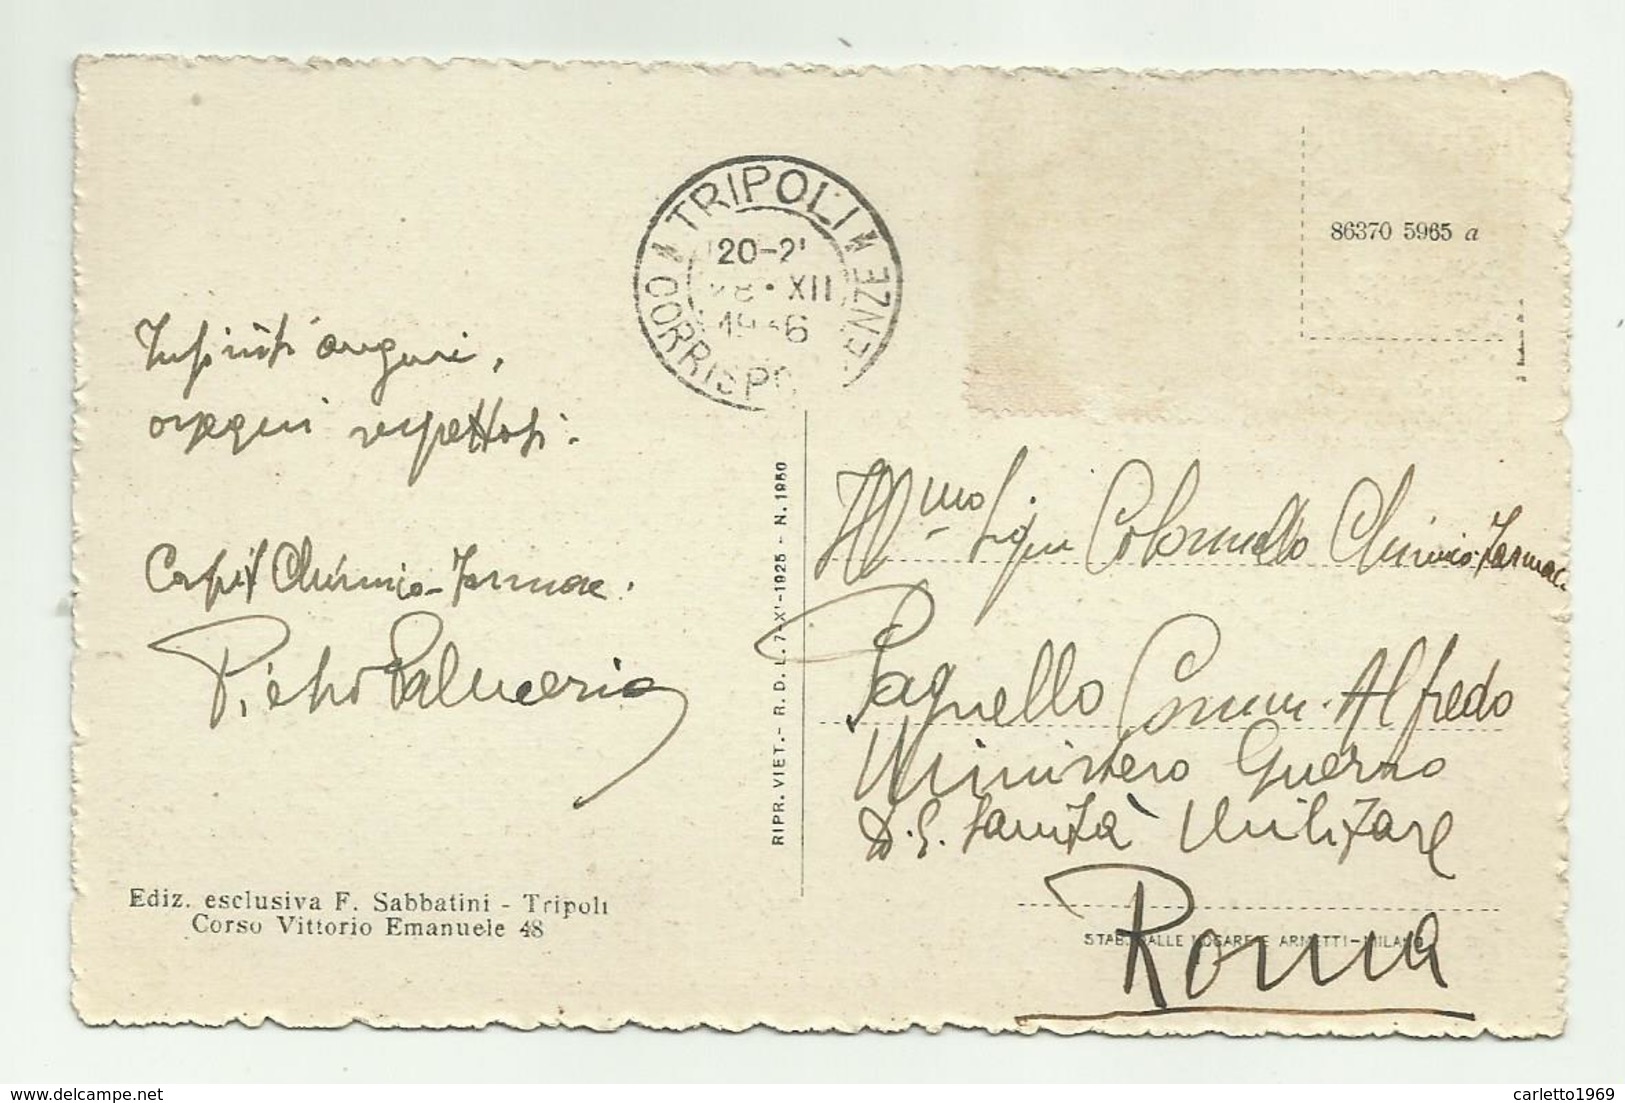 TRIPOLI
CORRISPO ENZE
20-21
28 • XII
1936
86370 5965 a
Infiniti auguri,
ossequi rispettosi.
Capit Chimico-Farmac.
Pietro Palmeria
Ill mo Sign Colonnello Chimico-Farmac.
Pagnello Comm. Alfredo
Ministero Guerra
D. G. Sanità Militare
Roma
RIPR. VIET. - R. D. L. 7-XI-1925 - N. 1950
Ediz. esclusiva F. Sabbatini - Tripoli
Corso Vittorio Emanuele 48
STAB. DALLE NOGARE E ARMETTI-MILANO
delcampe.net
carletto1969